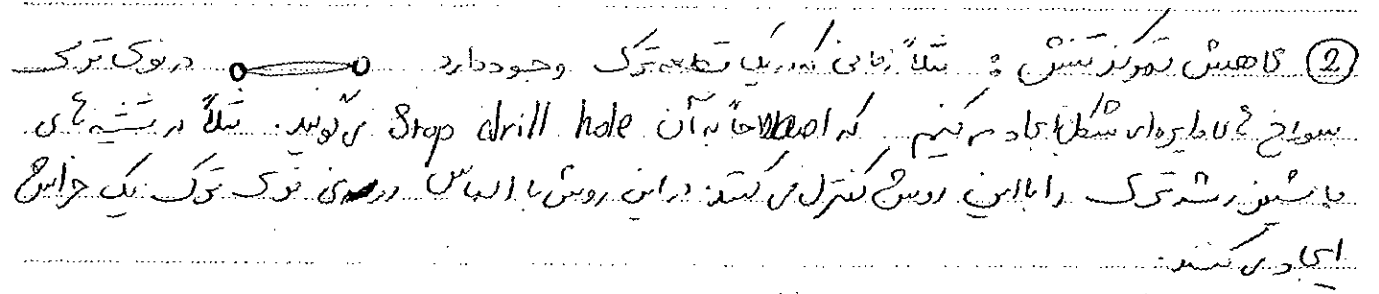 ② کاهش تمرکز تنش : مثلاً زمانی که در یک قطعه ترک وجود دارد در نوک ترک
سوراخ های دایره ای شکل ایجاد می کنیم که اصطلاحاً به آن Stop drill hole می گویند. مثلاً در شیشه های
ماشین رشد ترک را با این روش کنترل می کنند. در این روش با الماس نوک ترک یک خراش
ایجاد می کنند.